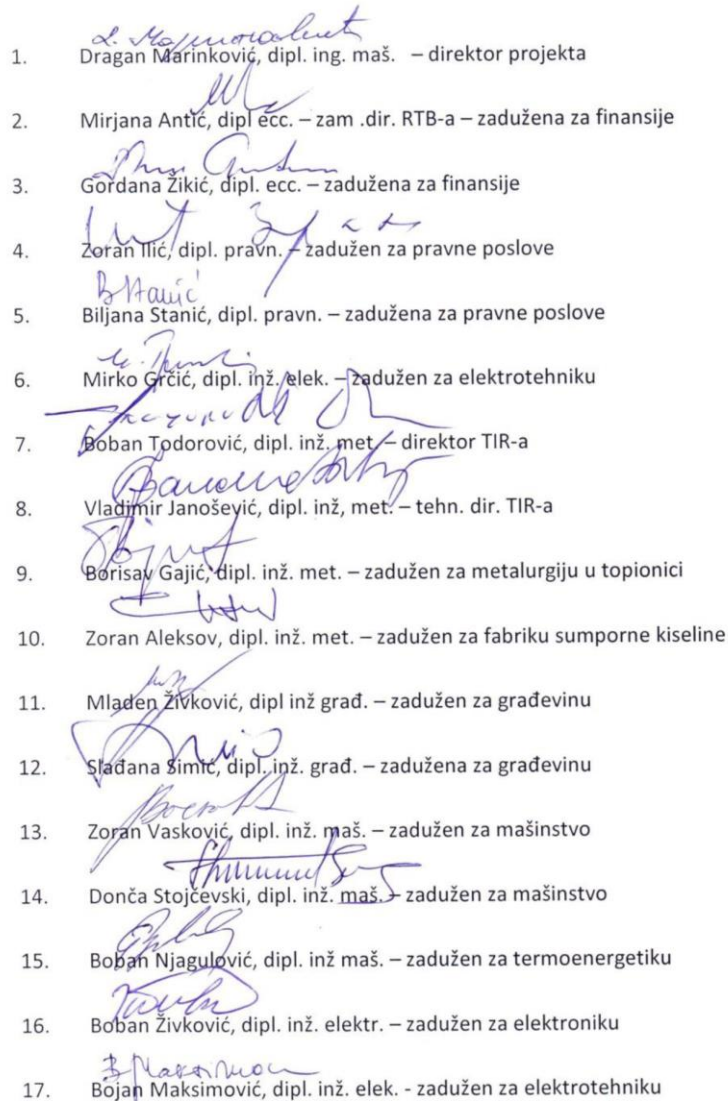 1. Dragan Marinković, dipl. ing. maš. – direktor projekta
2. Mirjana Antić, dipl ecc. – zam .dir. RTB-a – zadužena za finansije
3. Gordana Žikić, dipl. ecc. – zadužena za finansije
4. Zoran Ilić, dipl. pravn. – zadužen za pravne poslove
B Stanić
5. Biljana Stanić, dipl. pravn. – zadužena za pravne poslove
6. Mirko Grčić, dipl. inž. elek. – zadužen za elektrotehniku
7. Boban Todorović, dipl. inž. met. – direktor TIR-a
8. Vladimir Janošević, dipl. inž, met. – tehn. dir. TIR-a
9. Borisav Gajić, dipl. inž. met. – zadužen za metalurgiju u topionici
10. Zoran Aleksov, dipl. inž. met. – zadužen za fabriku sumporne kiseline
11. Mladen Živković, dipl inž građ. – zadužen za građevinu
12. Slađana Simić, dipl. inž. građ. – zadužena za građevinu
13. Zoran Vasković, dipl. inž. maš. – zadužen za mašinstvo
14. Donča Stojčevski, dipl. inž. maš. – zadužen za mašinstvo
15. Boban Njagulović, dipl. inž maš. – zadužen za termoenergetiku
16. Boban Živković, dipl. inž. elektr. – zadužen za elektroniku
17. Bojan Maksimović, dipl. inž. elek. - zadužen za elektrotehniku